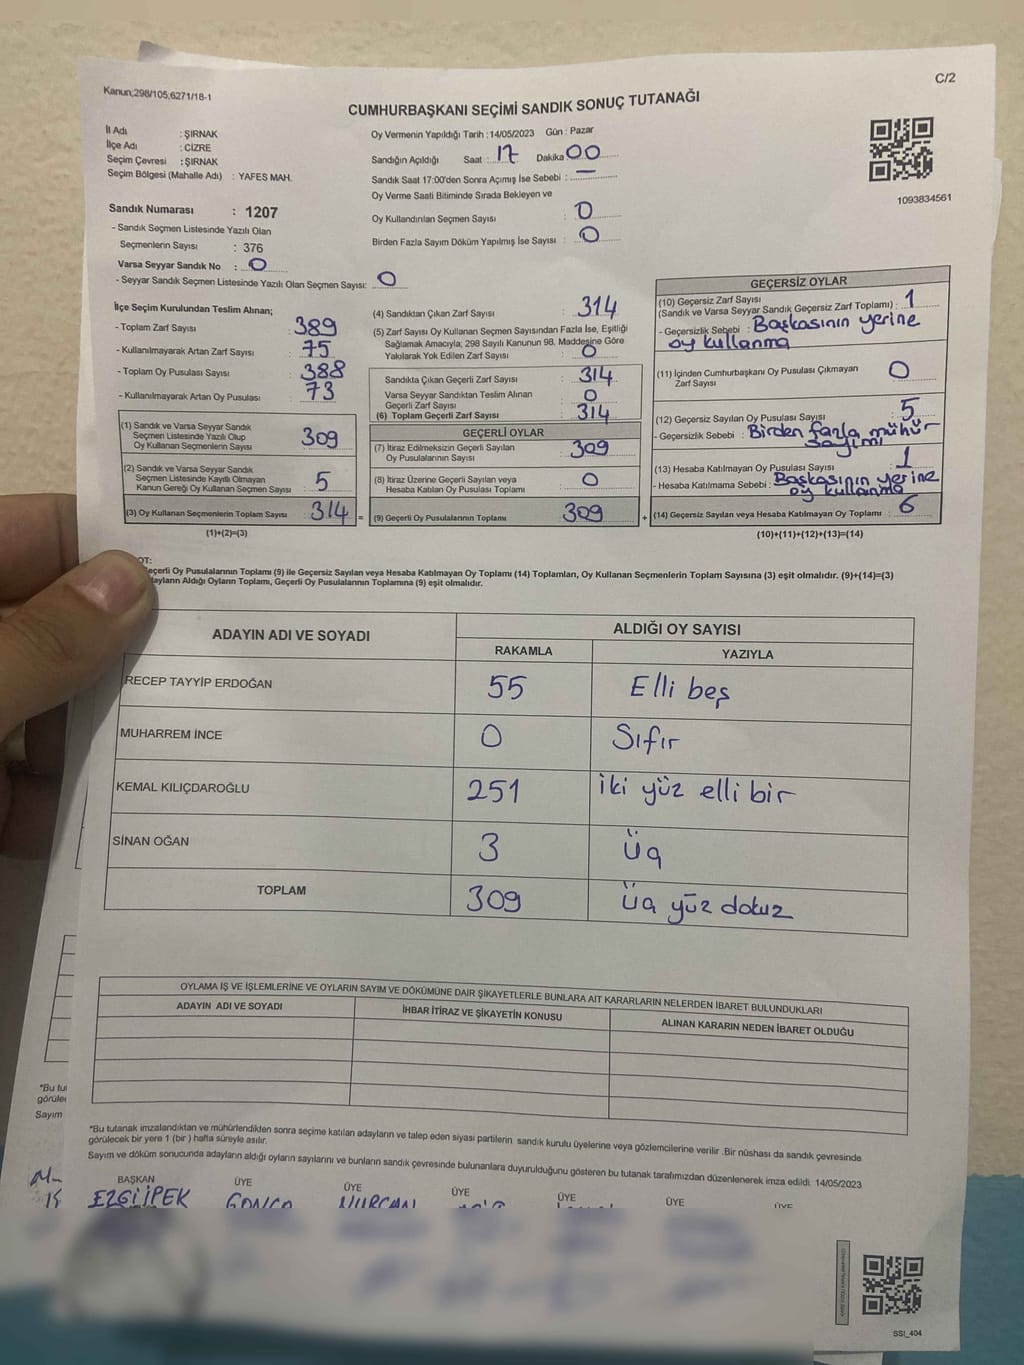 Kanun;298/105;6271/18-1
C/2
CUMHURBAŞKANI SEÇİMİ SANDIK SONUÇ TUTANAĞI
İl Adı : ŞIRNAK
İlçe Adı : CİZRE
Seçim Çevresi : ŞIRNAK
Seçim Bölgesi (Mahalle Adı) : YAFES MAH.
Oy Vermenin Yapıldığı Tarih : 14/05/2023 Gün : Pazar
Sandığın Açıldığı Saat : 17 Dakika 00
Sandık Saat 17:00'den Sonra Açımış İse Sebebi : —
Oy Verme Saati Bitiminde Sırada Bekleyen ve
Oy Kullandırılan Seçmen Sayısı : 0
Birden Fazla Sayım Döküm Yapılmış İse Sayısı : 0
1093834561
Sandık Numarası : 1207
- Sandık Seçmen Listesinde Yazılı Olan
Seçmenlerin Sayısı : 376
Varsa Seyyar Sandık No : 0
- Seyyar Sandık Seçmen Listesinde Yazılı Olan Seçmen Sayısı: 0
İlçe Seçim Kurulundan Teslim Alınan;
- Toplam Zarf Sayısı : 389
- Kullanılmayarak Artan Zarf Sayısı : 75
- Toplam Oy Pusulası Sayısı : 388
- Kullanılmayarak Artan Oy Pusulası : 73
(1) Sandık ve Varsa Seyyar Sandık
Seçmen Listesinde Yazılı Olup
Oy Kullanan Seçmenlerin Sayısı 309
(2) Sandık ve Varsa Seyyar Sandık
Seçmen Listesinde Kayıtlı Olmayan
Kanun Gereği Oy Kullanan Seçmen Sayısı 5
(3) Oy Kullanan Seçmenlerin Toplam Sayısı 314 =
(1)+(2)=(3)
(4) Sandıktan Çıkan Zarf Sayısı : 314
(5) Zarf Sayısı Oy Kullanan Seçmen Sayısından Fazla İse, Eşitliği
Sağlamak Amacıyla; 298 Sayılı Kanunun 98. Maddesine Göre
Yakılarak Yok Edilen Zarf Sayısı : 0
Sandıkta Çıkan Geçerli Zarf Sayısı : 314
Varsa Seyyar Sandıktan Teslim Alınan
Geçerli Zarf Sayısı : 0
(6) Toplam Geçerli Zarf Sayısı : 314
GEÇERLİ OYLAR
(7) İtiraz Edilmeksizin Geçerli Sayılan
Oy Pusulalarının Sayısı : 309
(8) İtiraz Üzerine Geçerli Sayılan veya
Hesaba Katılan Oy Pusulası Toplamı : 0
(9) Geçerli Oy Pusulalarının Toplamı 309 +
GEÇERSİZ OYLAR
(10) Geçersiz Zarf Sayısı
(Sandık ve Varsa Seyyar Sandık Geçersiz Zarf Toplamı) : 1
- Geçersizlik Sebebi : Başkasının yerine
oy kullanma
(11) İçinden Cumhurbaşkanı Oy Pusulası Çıkmayan
Zarf Sayısı : 0
(12) Geçersiz Sayılan Oy Pusulası Sayısı : 5
- Geçersizlik Sebebi : Birden fazla mühür
sayımı
(13) Hesaba Katılmayan Oy Pusulası Sayısı : 1
- Hesaba Katılmama Sebebi : Başkasının yerine
oy kullanma
(14) Geçersiz Sayılan veya Hesaba Katılmayan Oy Toplamı : 6
(10)+(11)+(12)+(13)=(14)
OT:
eçerli Oy Pusulalarının Toplamı (9) ile Geçersiz Sayılan veya Hesaba Katılmayan Oy Toplamı (14) Toplamları, Oy Kullanan Seçmenlerin Toplam Sayısına (3) eşit olmalıdır. (9)+(14)=(3)
dayların Aldığı Oyların Toplamı, Geçerli Oy Pusulalarının Toplamına (9) eşit olmalıdır.
ADAYIN ADI VE SOYADI
ALDIĞI OY SAYISI
RAKAMLA
YAZIYLA
RECEP TAYYİP ERDOĞAN 55 Elli beş
MUHARREM İNCE 0 Sıfır
KEMAL KILIÇDAROĞLU 251 iki yüz elli bir
SİNAN OĞAN 3 üç
TOPLAM 309 üç yüz dokuz
OYLAMA İŞ VE İŞLEMLERİNE VE OYLARIN SAYIM VE DÖKÜMÜNE DAİR ŞİKAYETLERLE BUNLARA AİT KARARLARIN NELERDEN İBARET BULUNDUKLARI
ADAYIN ADI VE SOYADI
İHBAR İTİRAZ VE ŞİKAYETİN KONUSU
ALINAN KARARIN NEDEN İBARET OLDUĞU
*Bu tutanak imzalandıktan ve mühürlendikten sonra seçime katılan adayların ve talep eden siyasi partilerin sandık kurulu üyelerine veya gözlemcilerine verilir .Bir nüshası da sandık çevresinde
görülecek bir yere 1 (bir ) hafta süreyle asılır.
Sayım ve döküm sonucunda adayların aldığı oyların sayılarını ve bunların sandık çevresinde bulunanlara duyurulduğunu gösteren bu tutanak tarafımızdan düzenlenerek imza edildi. 14/05/2023
*Bu tu
görüle
Sayım
BAŞKAN ÜYE ÜYE ÜYE ÜYE ÜYE ÜYE
EZGİ İPEK GONCA NURCAN
SSI_404